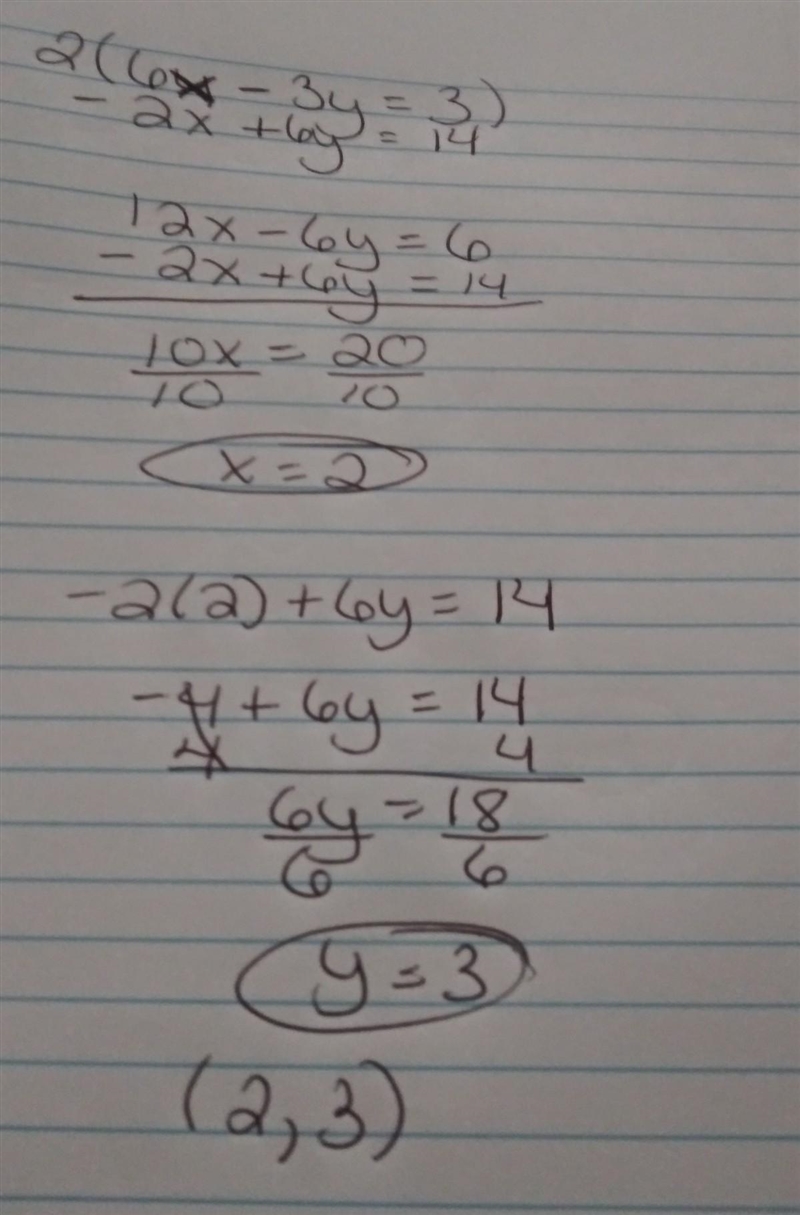 2(6x - 3y = 3)
- 2x + 6y = 14
12x - 6y = 6
- 2x + 6y = 14
10x = 20
10 10
x = 2
-2(2) + 6y = 14
-4 + 6y = 14
4 4
6y = 18
6 6
y = 3
(2, 3)